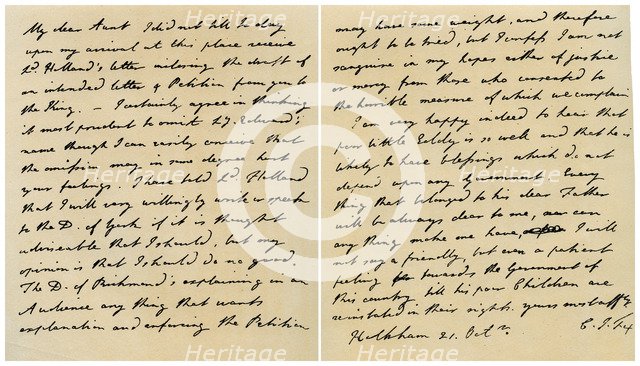 My dear Aunt I did not till to day
upon my arrival at this place receive
Ld. Holland's letter inclosing the draft of
an intended letter & Petition from you to
the King. – I certainly agree in thinking
it most prudent to omit Ld. Edward's
name though I can easily conceive that
the omission may in some degree hurt
your feelings. I have told Ld. Holland
that I will very willingly write or speak
to the D. of York if it is thought
adviseable that I should, but my
opinion is that I should do no good.
The D. of Richmond's explaining in an
Audience any thing that wants
explanation and enforcing the Petition
may have some weight, and therefore
ought to be tried, but I confess I am not
sanguine in my hopes either of justice
or mercy from those who consented to
the horrible measure of which we complain
I am very happy indeed to hear that
poor little Eddy is so well and that he is
likely to have blessings which do not
depend upon any Government. Every
thing that belonged to his dear Father
will be always dear to me, can
any thing make one have, I will
not say a friendly, but even a patient
feeling towards the Government of
this country, till his poor Children are
reinstated in their rights. yours most affly
Holkham 21. Octr. C. J. Fox
Heritage
Heritage
Heritage
Heritage
Heritage
Heritage